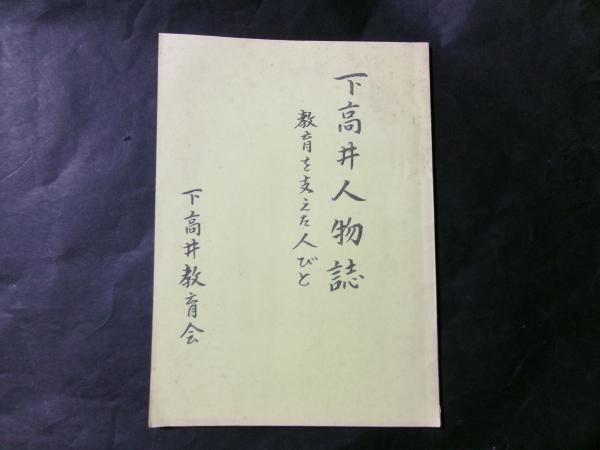 下高井人物誌
教育を支えた人びと
下高井教育会